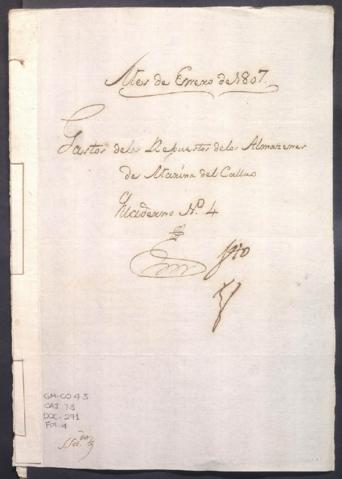 Mes de Enero de 1807.
Gastos delos Repuestos delos Almazenes
de Marina del Callao
Quaderno N.º 4
GM-CO 4.3
CAJ. 73
DOC-271
FOL-4